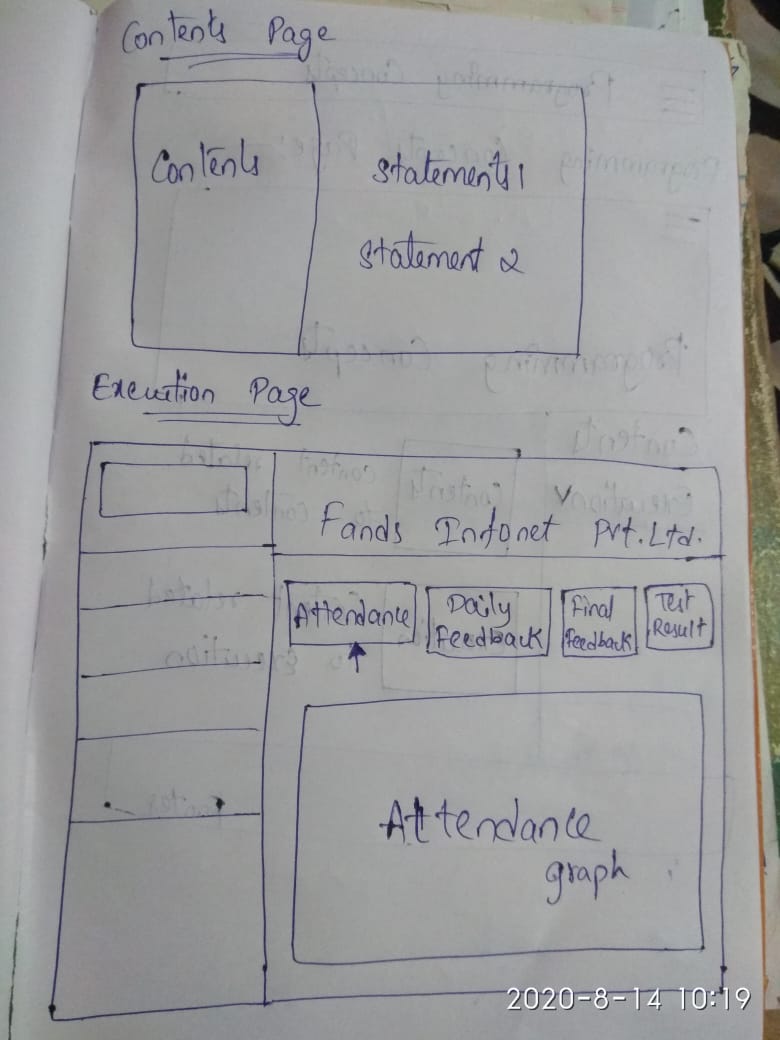 Contents Page
Contents
Statements 1
Statement 2
Execution Page
Fands Infonet Pvt. Ltd.
Attendance
Daily
Feedback
Final
Feedback
Test
Result
Attendance
graph
2020-8-14 10:19